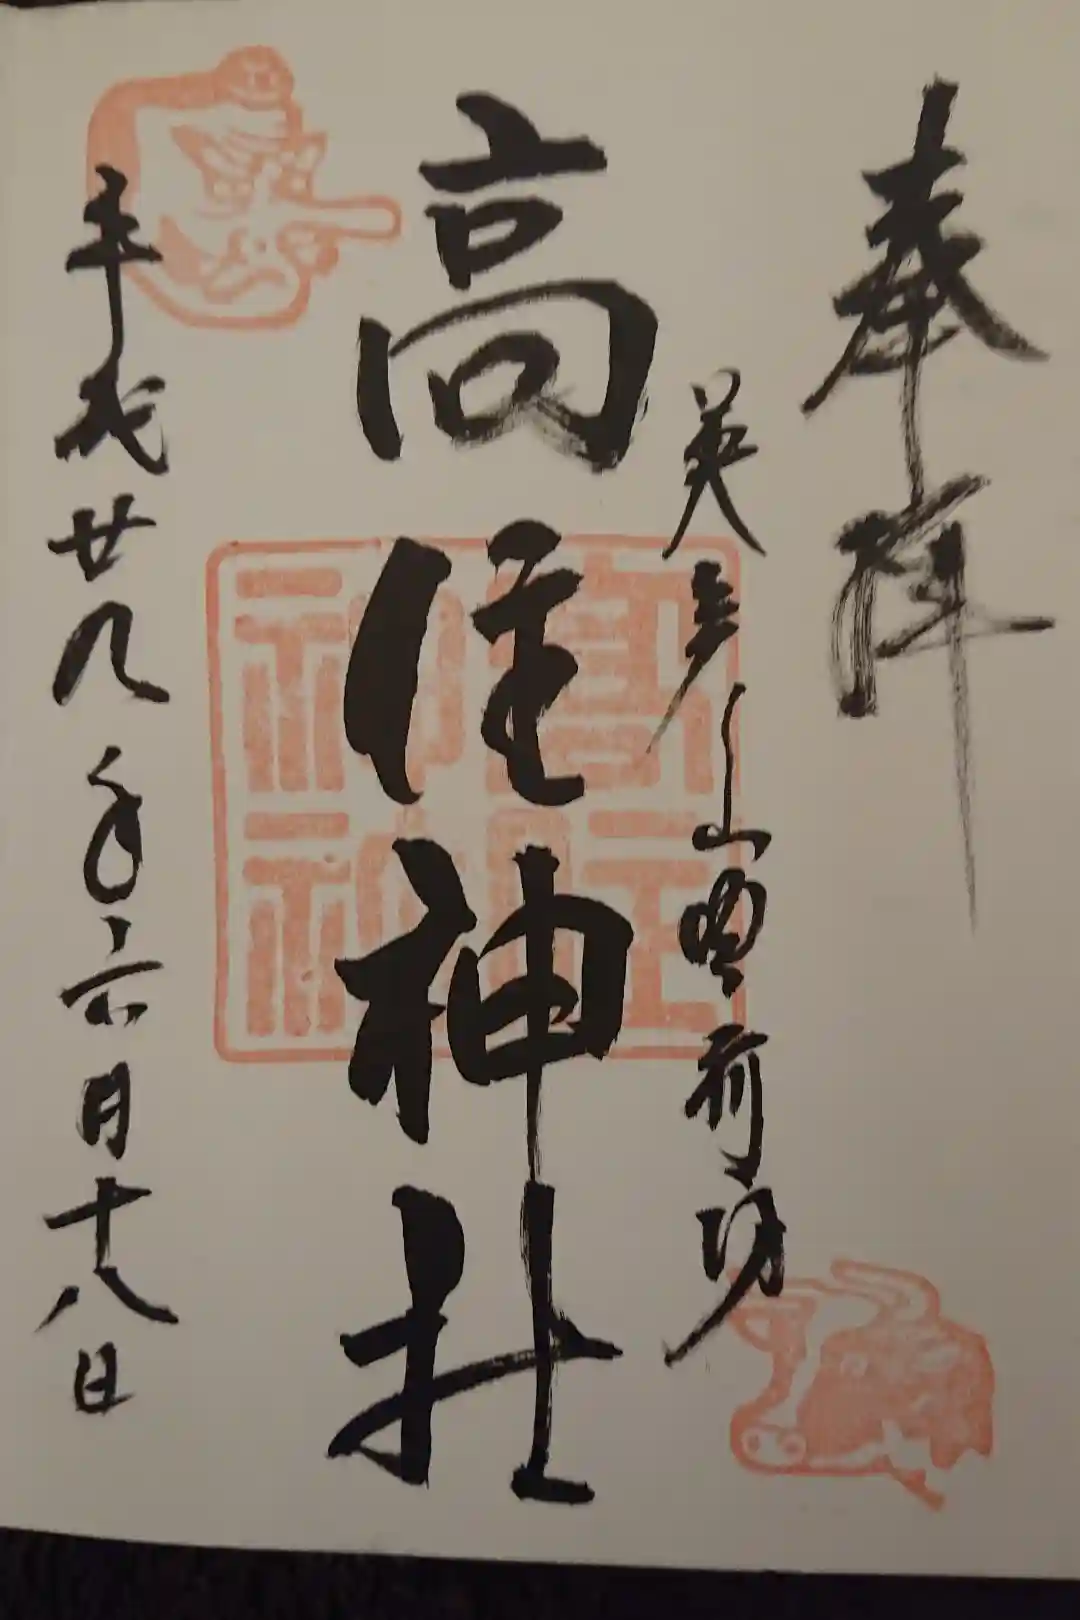 奉拝
英彦山豊前坊
高住神社
平成廿八年六月十八日
高住
神社